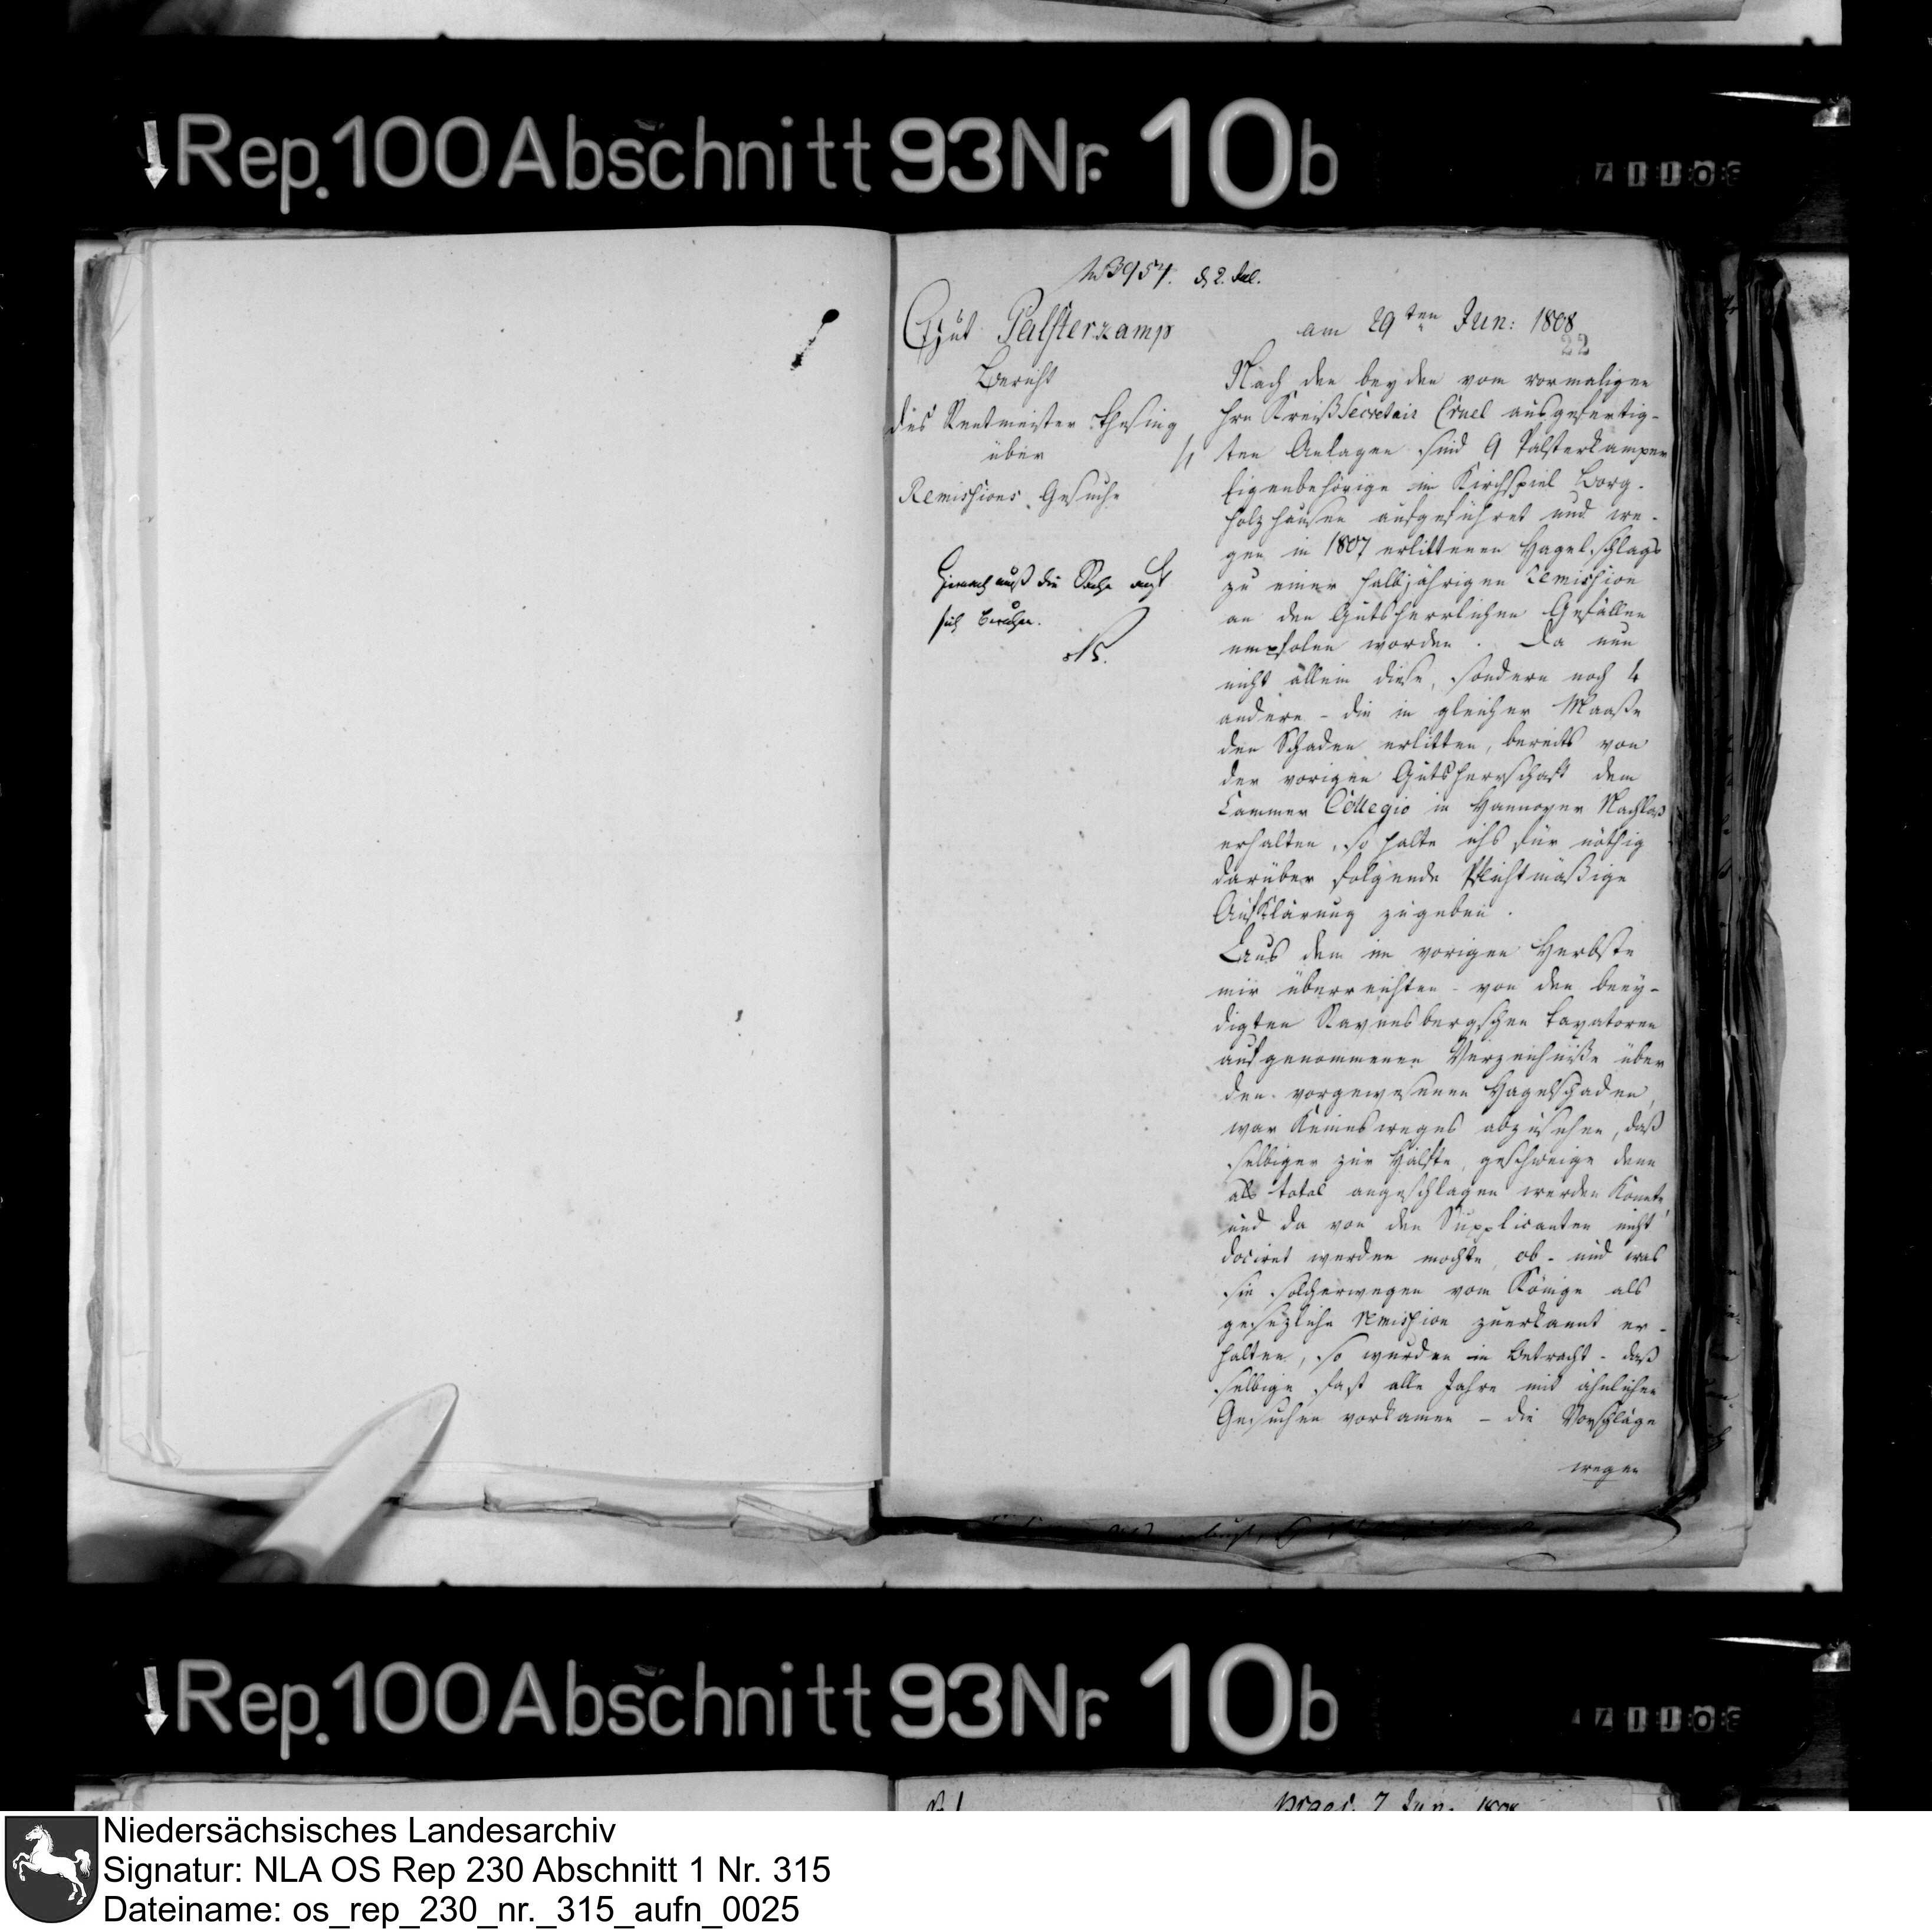 Rep. 100 Abschnitt 93 Nr. 10b
No 3957. d 2. Jul.
Gut Palsterkamp
am 29ten Jun: 1808
22
Bericht
des Rentmeister Thesing
über
Remissions-Gesuche
Hienach muß die Sache auf
sich beruhen.
Nach den beyden vom vormaligen
Hrn Kreißsecretair Cruel ausgefertig-
ten Anlagen sind 9 Palsterkamper
Eigenbehörige im Kirchspiel Borg-
holzhausen aufgeführet und we-
gen in 1807 erlittenen Hagelschlags
zu einer halbjährigen Remission
an den Gutsherrlichen Gefällen
empfolen worden. Da nun
nicht allein diese, sondern noch 4
andere - die in gleicher Maaße
den Schaden erlitten, bereits von
der vorigen Gutsherrschaft dem
Cammer Collegio in Hannover Nachlaß
erhalten, so halte ichs für nöthig
darüber folgende Pflichtmäßige
Aufklärung zugeben.
Aus dem im vorigen Herbste
mir überreichten - von den beey-
digten Ravensbergschen Taxatoren
aufgenommenen Verzeichniße über
den vorgewesenen Hagelschaden,
war keinesweges abzusehen, daß
selbiger zur Hälfte, geschweige denn
als total angeschlagen werden konnte,
und da von den Supplicanten nicht
dociret werden mochte, ob - und was
sie solcherwegen vom Könige als
gesezliche Remission zuerkannt er-
halten, so wurden in Betracht - daß
selbige fast alle Jahre mit ähnlichen
Gesuchen vorkamen - die Vorschläge
wegen
Rep. 100 Abschnitt 93 Nr. 10b
praes. 7 Jun. 1808
Niedersächsisches Landesarchiv
Signatur: NLA OS Rep 230 Abschnitt 1 Nr. 315
Dateiname: os_rep_230_nr._315_aufn_0025